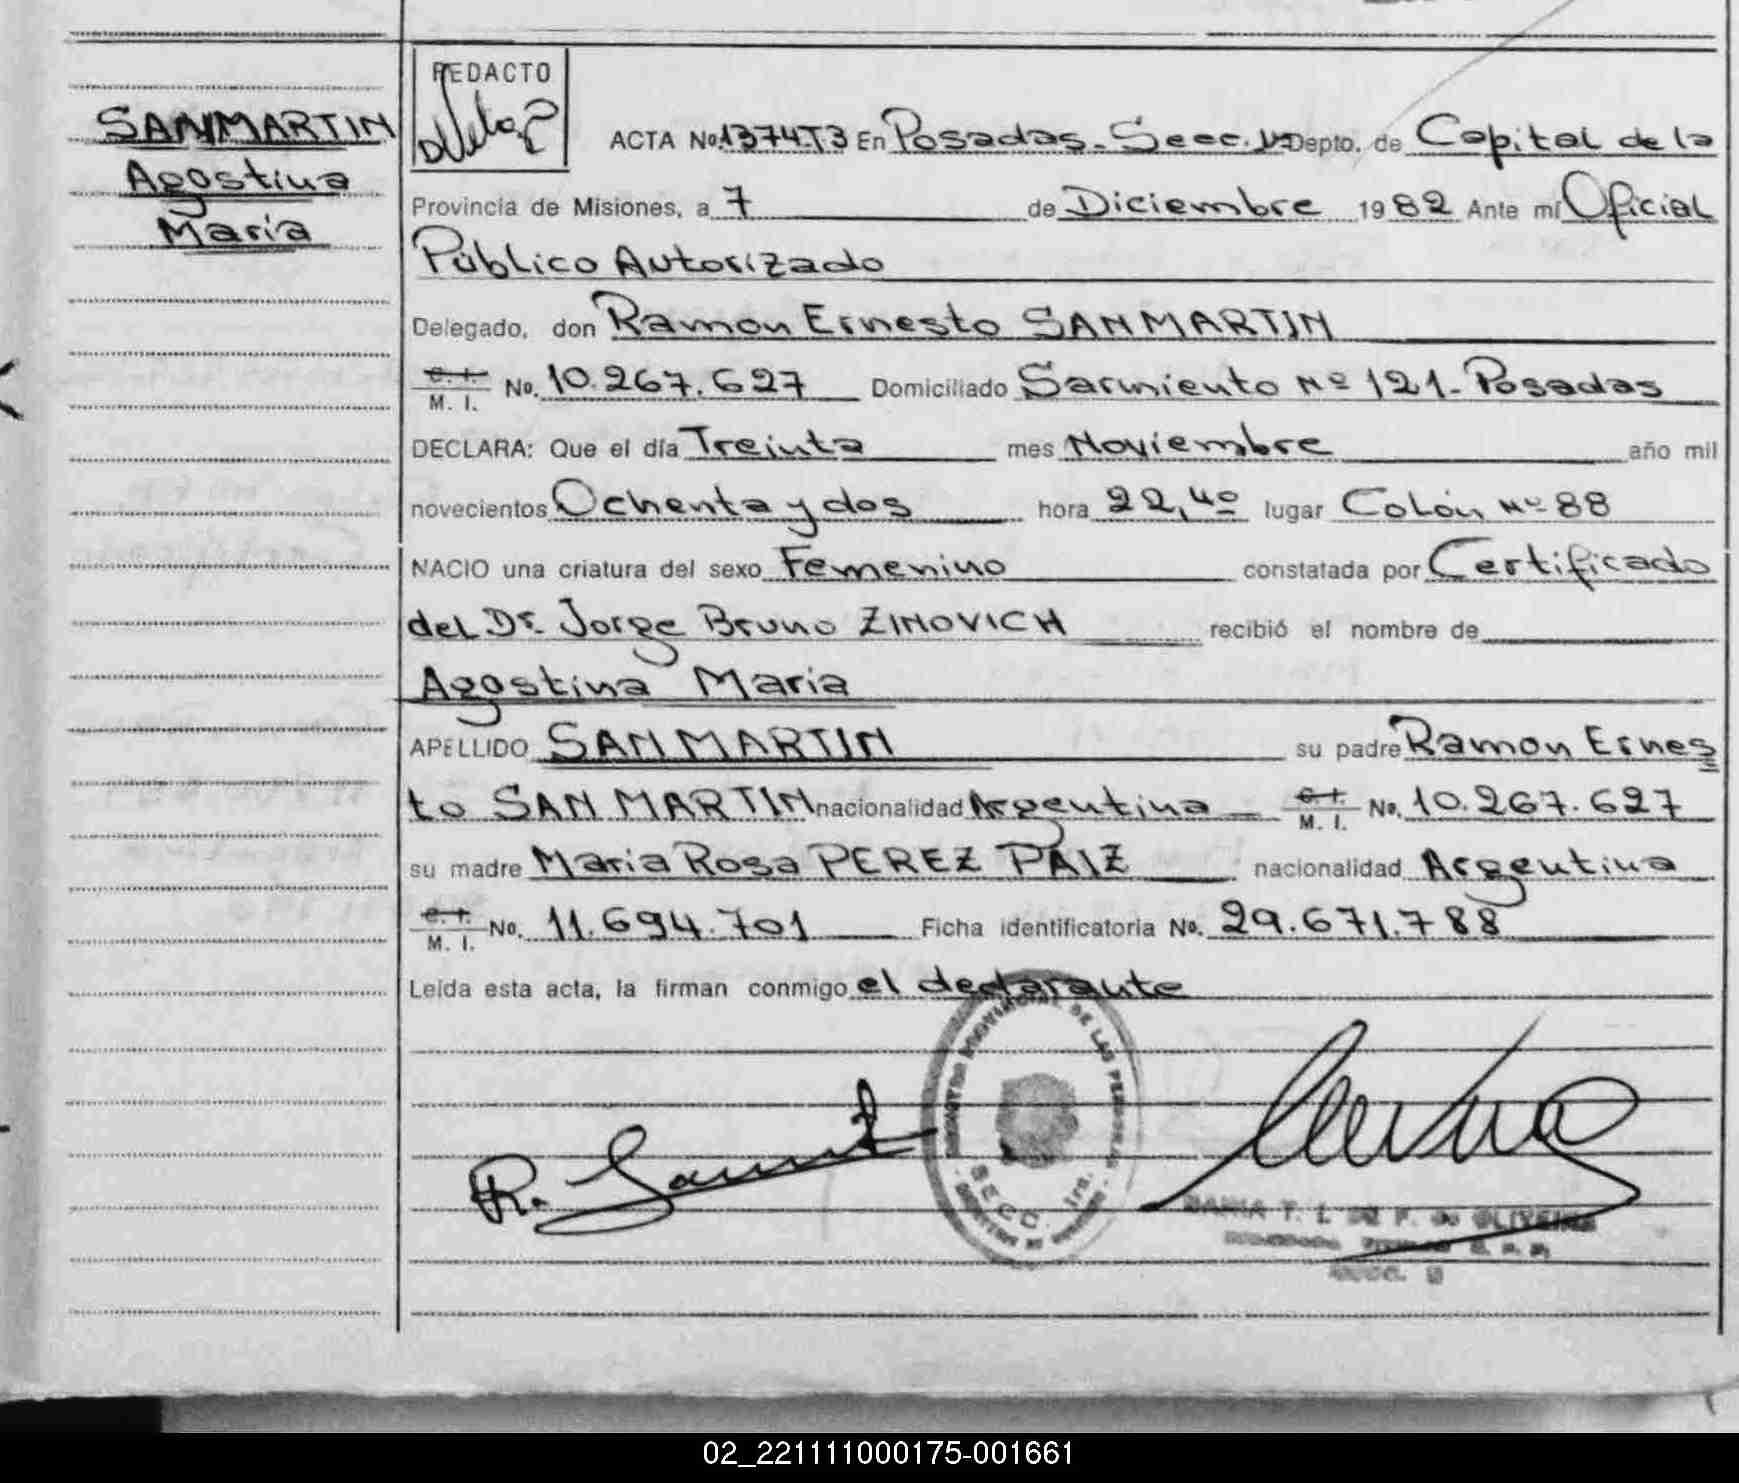 SANMARTIN
Agostina
María
REDACTO
ACTA No. 1374T3 En Posadas - Secc. 1ª Depto. de Capital de la
Provincia de Misiones, a 7 de Diciembre 1982 Ante mí Oficial
Público Autorizado
Delegado, don Ramon Ernesto SANMARTIN
C. I. M. I. No. 10.267.627 Domiciliado Sarmiento Nº 121 - Posadas
DECLARA: Que el día Treinta mes Noviembre año mil
novecientos Ochenta y dos hora 22,40 lugar Colón Nº 88
NACIO una criatura del sexo Femenino constatada por Certificado
del Dr. Jorge Bruno ZINOVICH recibió el nombre de
Agostina María
APELLIDO SANMARTIN su padre Ramon Ernes
to SANMARTIN nacionalidad Argentina C. I. M. I. No. 10.267.627
su madre Maria Rosa PEREZ PAIZ nacionalidad Argentina
C. I. M. I. No. 11.694.701 Ficha identificatoria No. 29.671.788
Leída esta acta, la firman conmigo el declarante
REGISTRO PROVINCIAL DE LAS PERSONAS
SECC. 1ra.
R. Sanmt
T. L. DE F. de OLIVEIRA
02_221111000175-001661